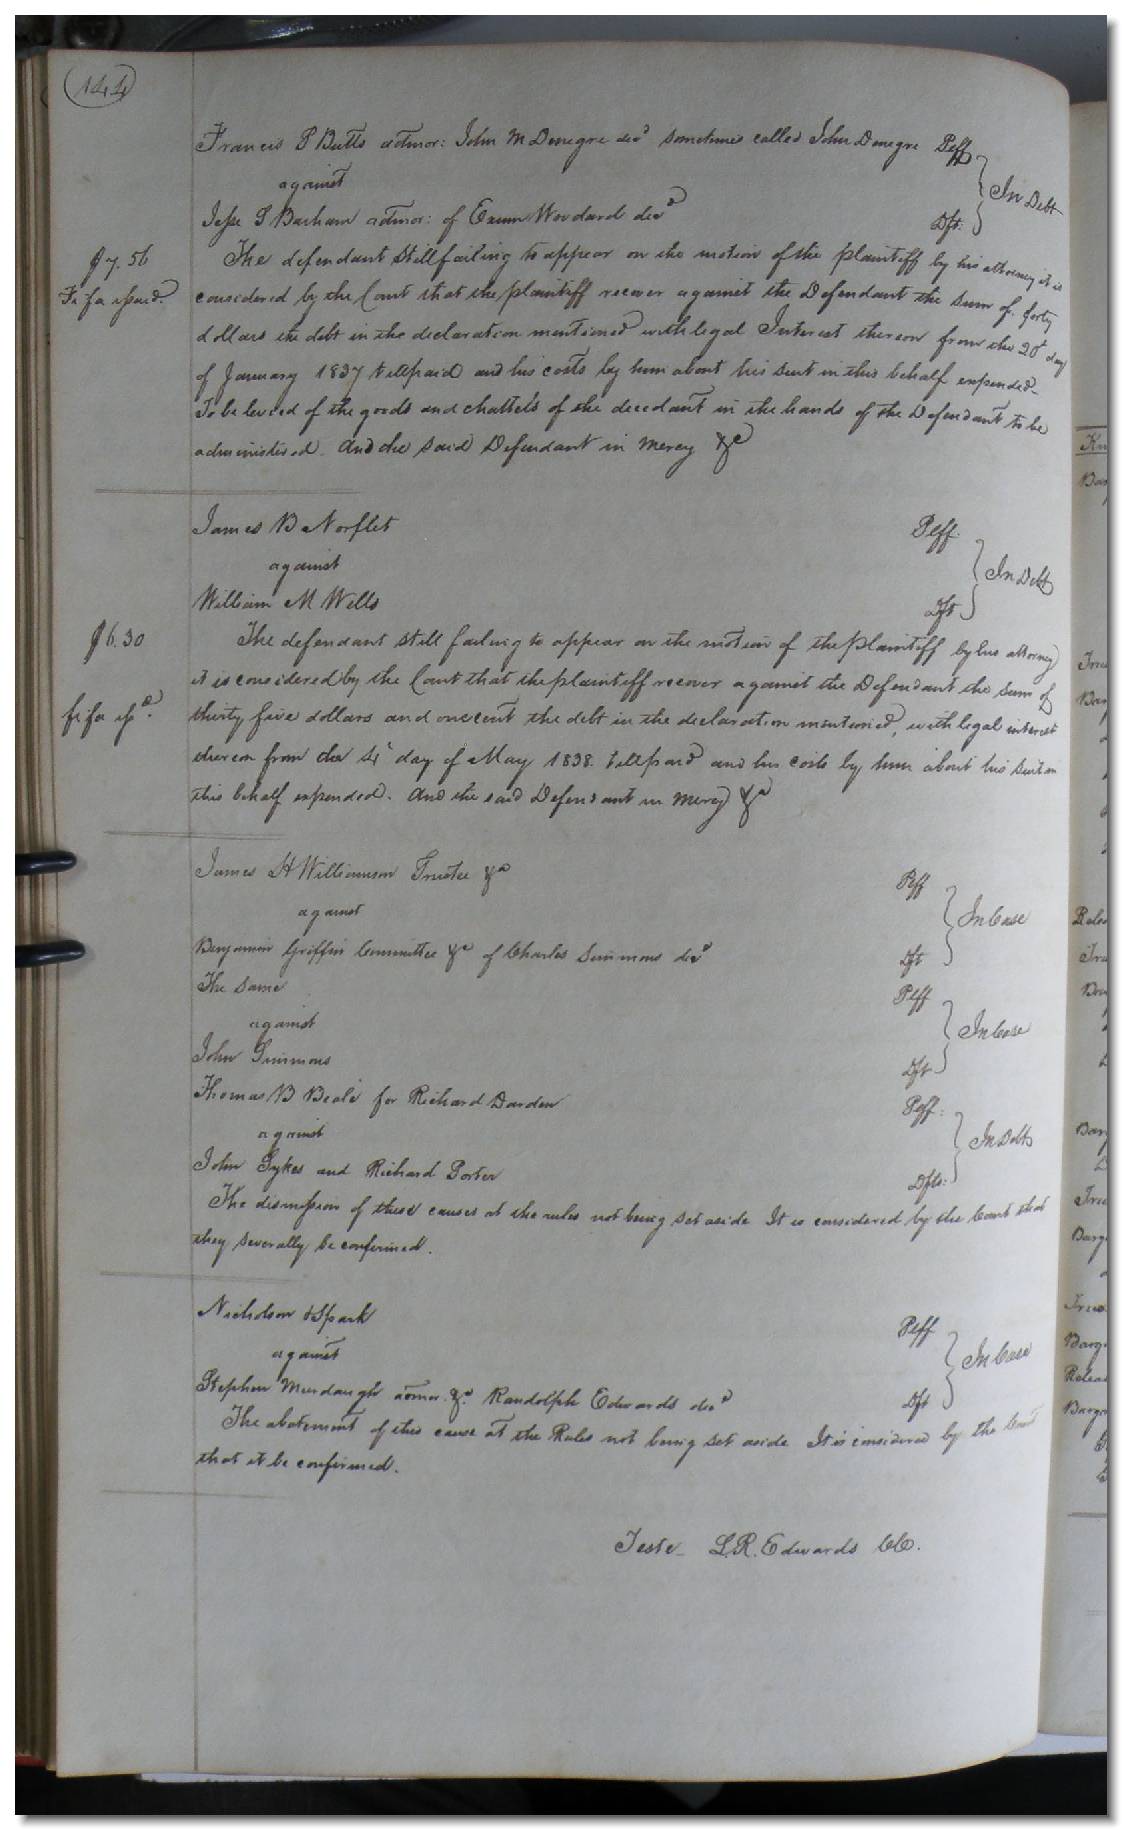 144
Francis P Butts admor: John McDenegre decd sometimes called John Denegre Plff
against
In Debt
Jesse S Barham admor: of Exum Woodard decd
Dft:
$7.56
Fi fa issued.
The defendant still failing to appear on the motion of the plaintiff by his attorney it is
considered by the Court that the plaintiff recover against the Defendant the sum of forty
dollars the debt in the declaration mentioned with legal Interest thereon from the 20th day
of January 1837 till paid and his costs by him about his suit in this behalf expended.
To be levied of the goods and chattels of the decedant in the hands of the Defendant to be
administered. And the said Defendant in mercy &c
James B Norflet Plff.
against
In Debt
William M Wells Dft
$6.30
The defendant still failing to appear on the motion of the plaintiff by his attorney
it is considered by the Court that the plaintiff recover against the Defendant the sum of
fi fa issd.
thirty five dollars and one cent the debt in the declaration mentioned, with legal interest
thereon from the 4th day of May 1838. till paid and his costs by him about his suit in
this behalf expended. And the said Defendant in mercy &c
James H Williamson Trustee &c Plff
against
In Case
Benjamin Griffin Committee &c of Charles Simmons decd Dft
The same Plff
against
In Case
John Simmons Dft
Thomas B Beale for Richard Darden Plff:
against
In Debt
John Sykes and Richard Porter Dfts:
The dismission of these causes at the rules not being set aside It is considered by the Court that
they severally be confirmed.
Nicholson & Spark Plff
against
In Case
Stephen Murdaugh admor. &c. Randolph Edwards decd Dft
The abatement of this cause at the Rules not being set aside It is considered by the Court
that it be confirmed.
Teste L.R. Edwards CC.